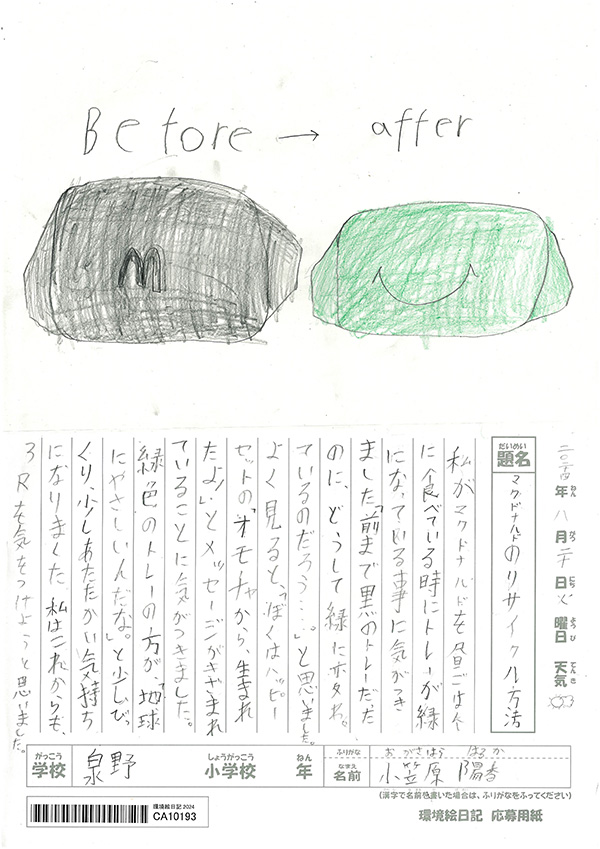 Before → after
M
二〇二四年八月二十日火曜日 天気
ねん がつ にち ようび てんき
だいめい
題名
マクドナルドのリサイクル方法
私がマクドナルドを昼ごはん
に食べている時にトレーが緑
になっている事に気がつき
ました。「前まで黒のトレーだた
のに、どうして緑に
ているのだろう…。」と思いました。
よく見ると、「ぼくはハッピー
セットのオモチャから、生まれ
たよ!」とメッセージがきざまれ
ていることに気がつきました。
緑色のトレーの方が、「地球
にやさしいんだな。」と少しびっ
くり、少しあたたかい気持ち
になりました。私はこれからも、
3Rを気をつけようと思いました。
がっこう しょうがっこう ねん
学校 泉野 小学校 年
ふりがな おがさはら はるか
なまえ
名前 小笠原 陽香
(漢字で名前を書いた場合は、ふりがなをふってください)
環境絵日記 2024
CA10193
環境絵日記 応募用紙